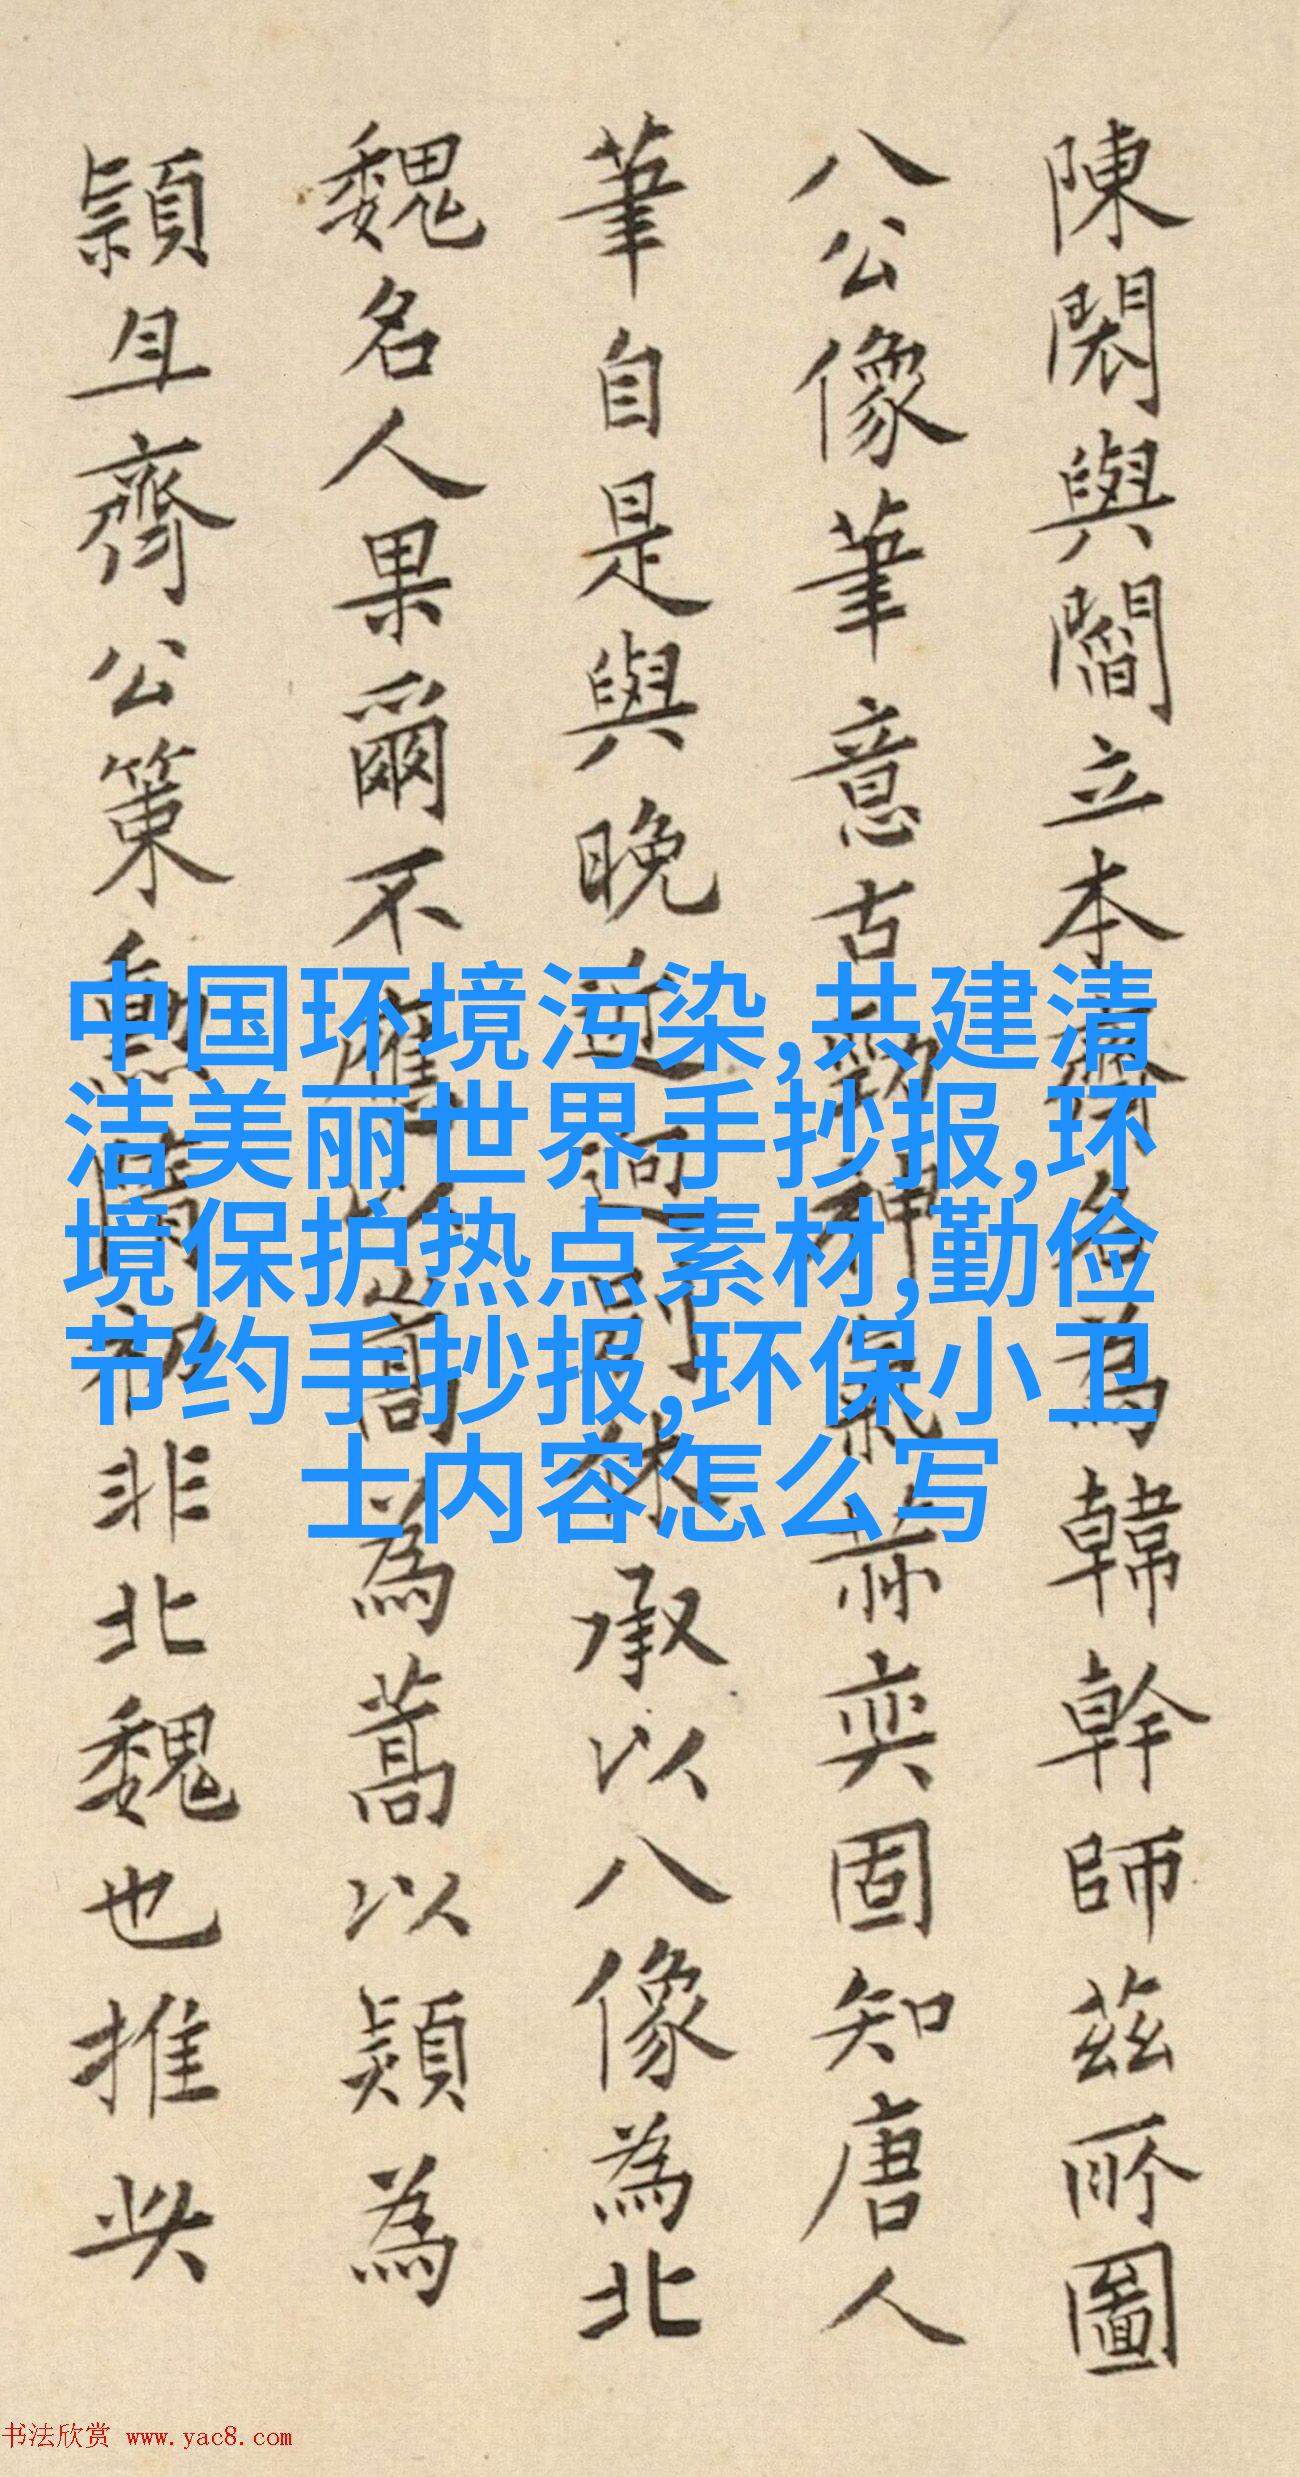 陳閎與閻立本齊名為韓幹師茲所圖
八公像筆意古勁神氣赫奕固知唐人
筆自是與晚近迥別殊承以八像為北
魏名人果爾不應以嵩為蒿以頴為
頴且齊公策勳隋初非北魏也推此
中国环境污染,共建清
洁美丽世界手抄报,环
境保护热点素材,勤俭
节约手抄报,环保小卫
士内容怎么写
书法欣赏 www.yac8.com